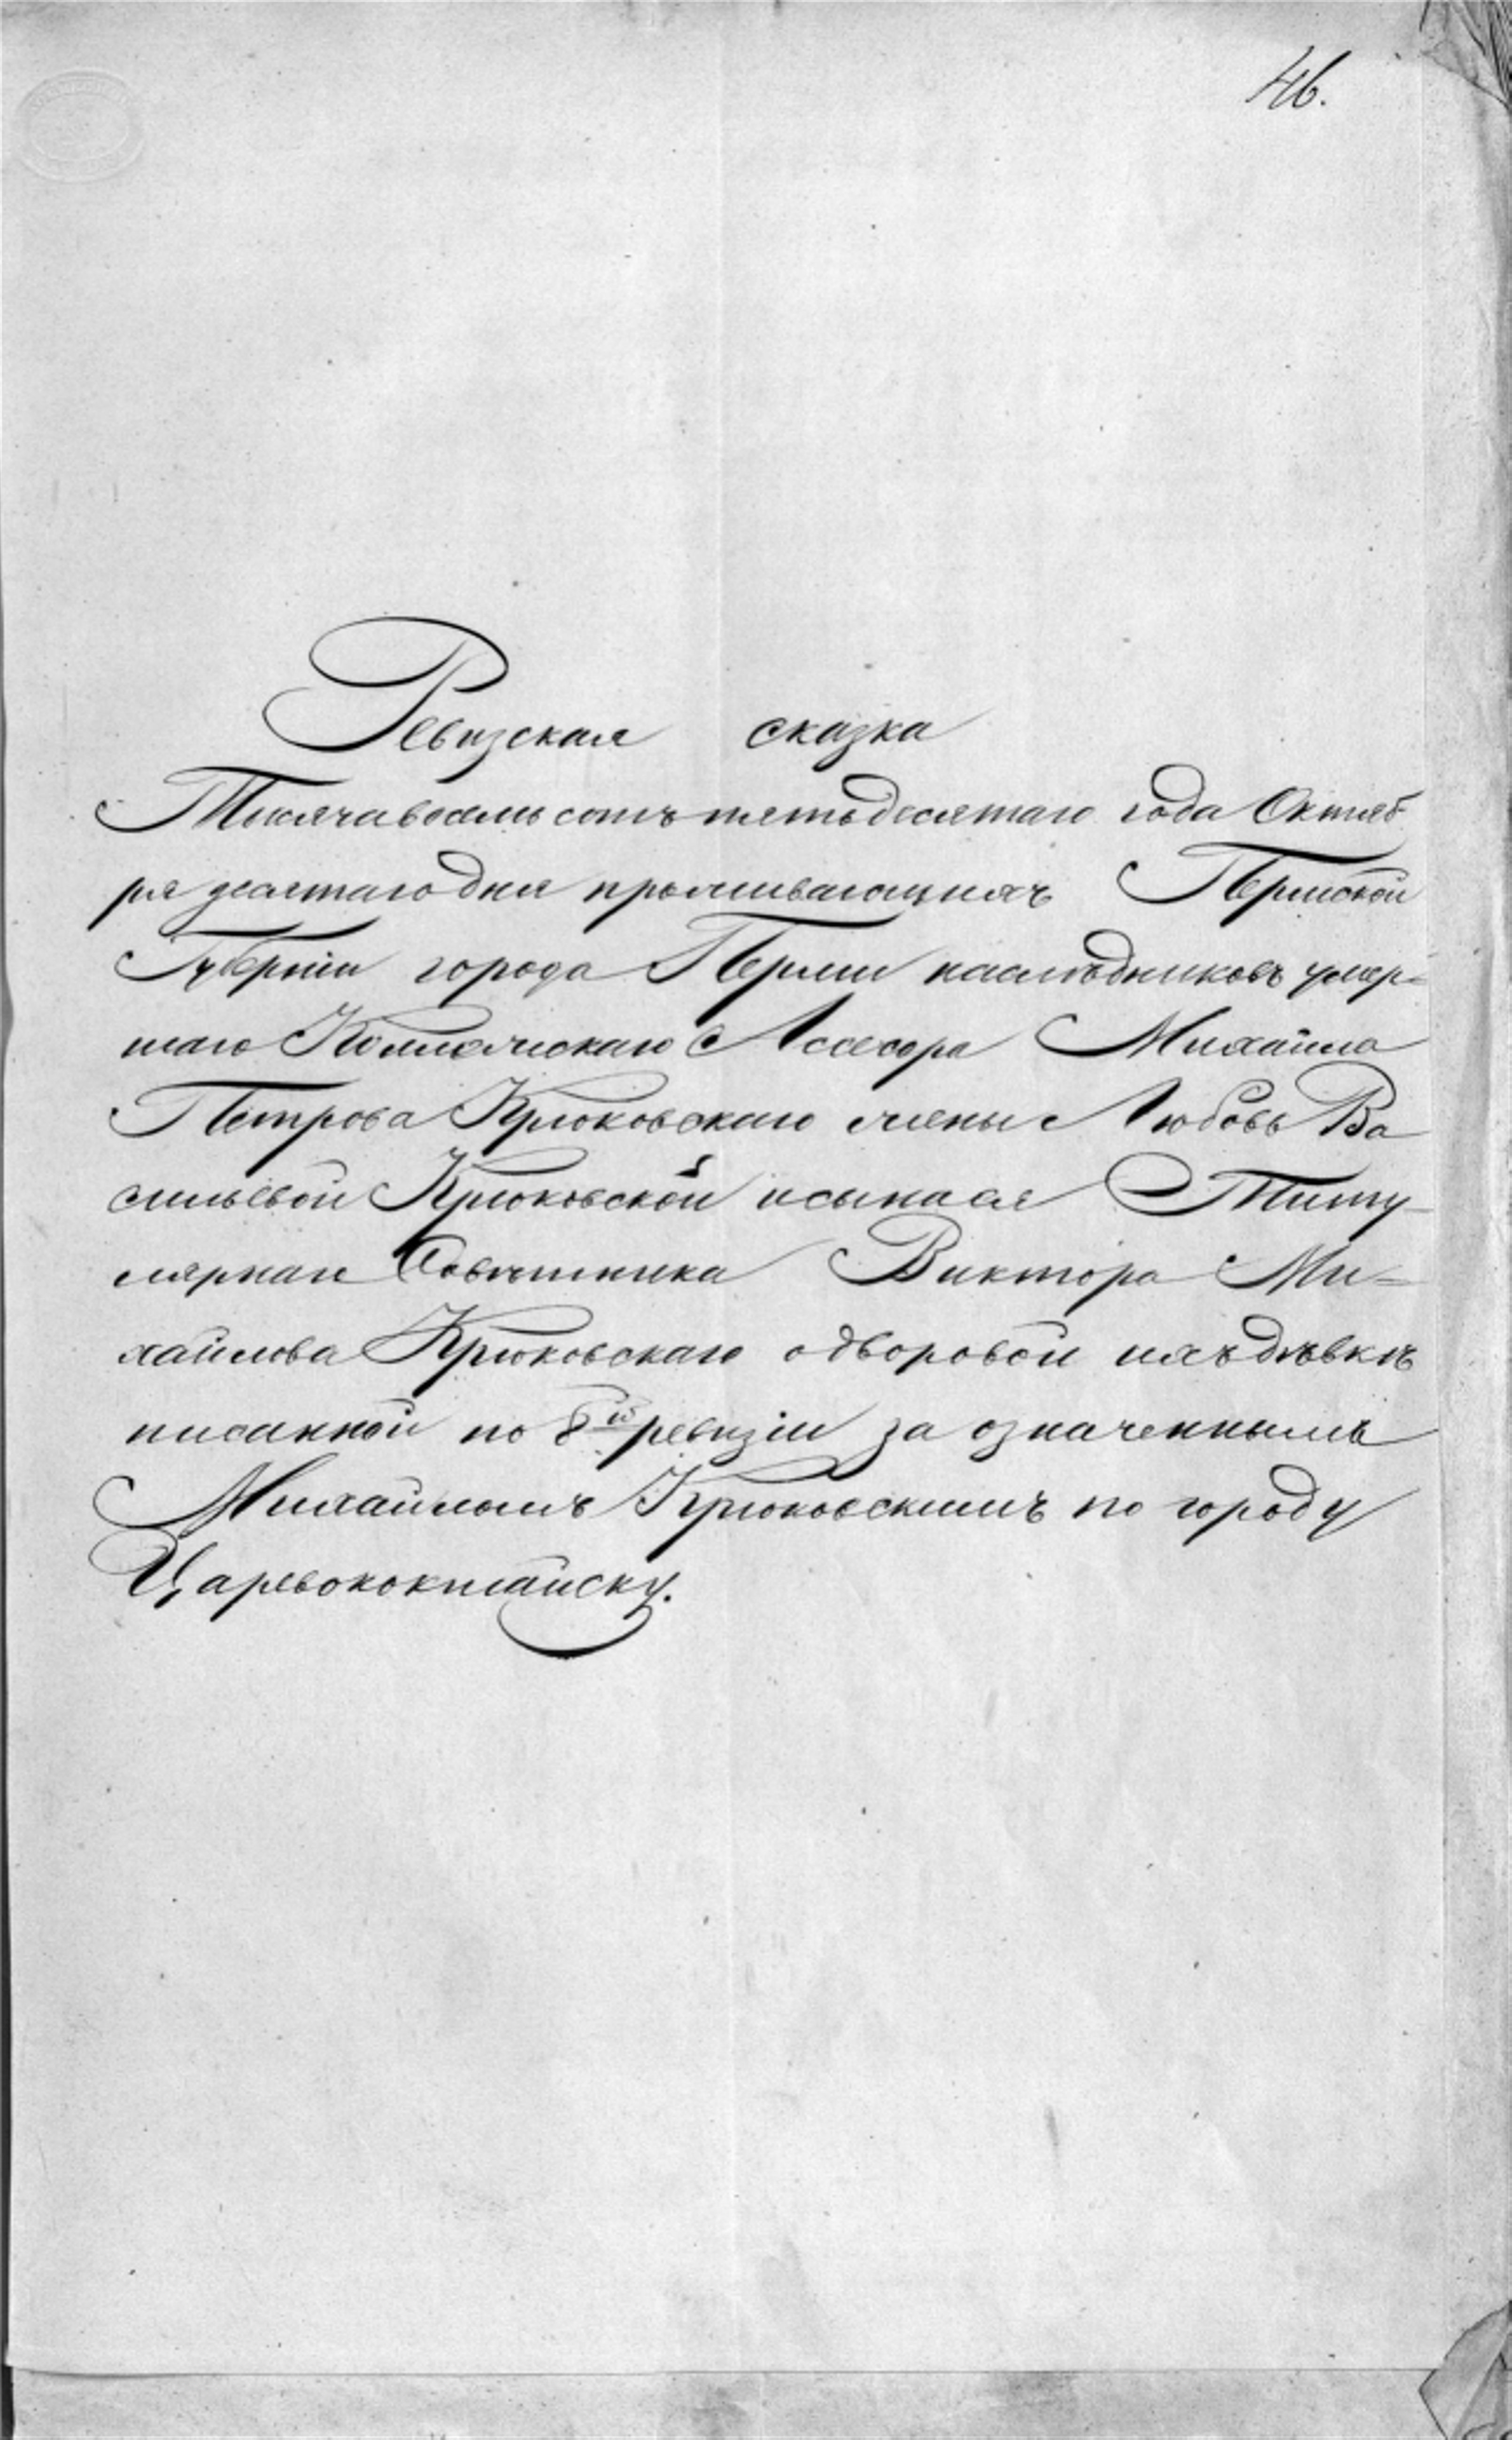 46.
Ревизская сказка
Тысяча восемь сотъ пятьдесятаго года Октяб
ря десятаго дня проживающихъ Пермской
Губерніи города Перми наслѣдниковъ умер=
шаго Коллежскаго Ассесора Михайла
Петрова Крюковскаго жены Любовь Ва
сильевой Крюковской и сына ея Титу-
лярнаго Совѣтника Виктора Ми=
хайлова Крюковскаго о дворовой ихъ дѣвкѣ
писанной по 8й ревизіи за означеннымъ
Михайломъ Крюковскимъ по городу
Царевококшайску.